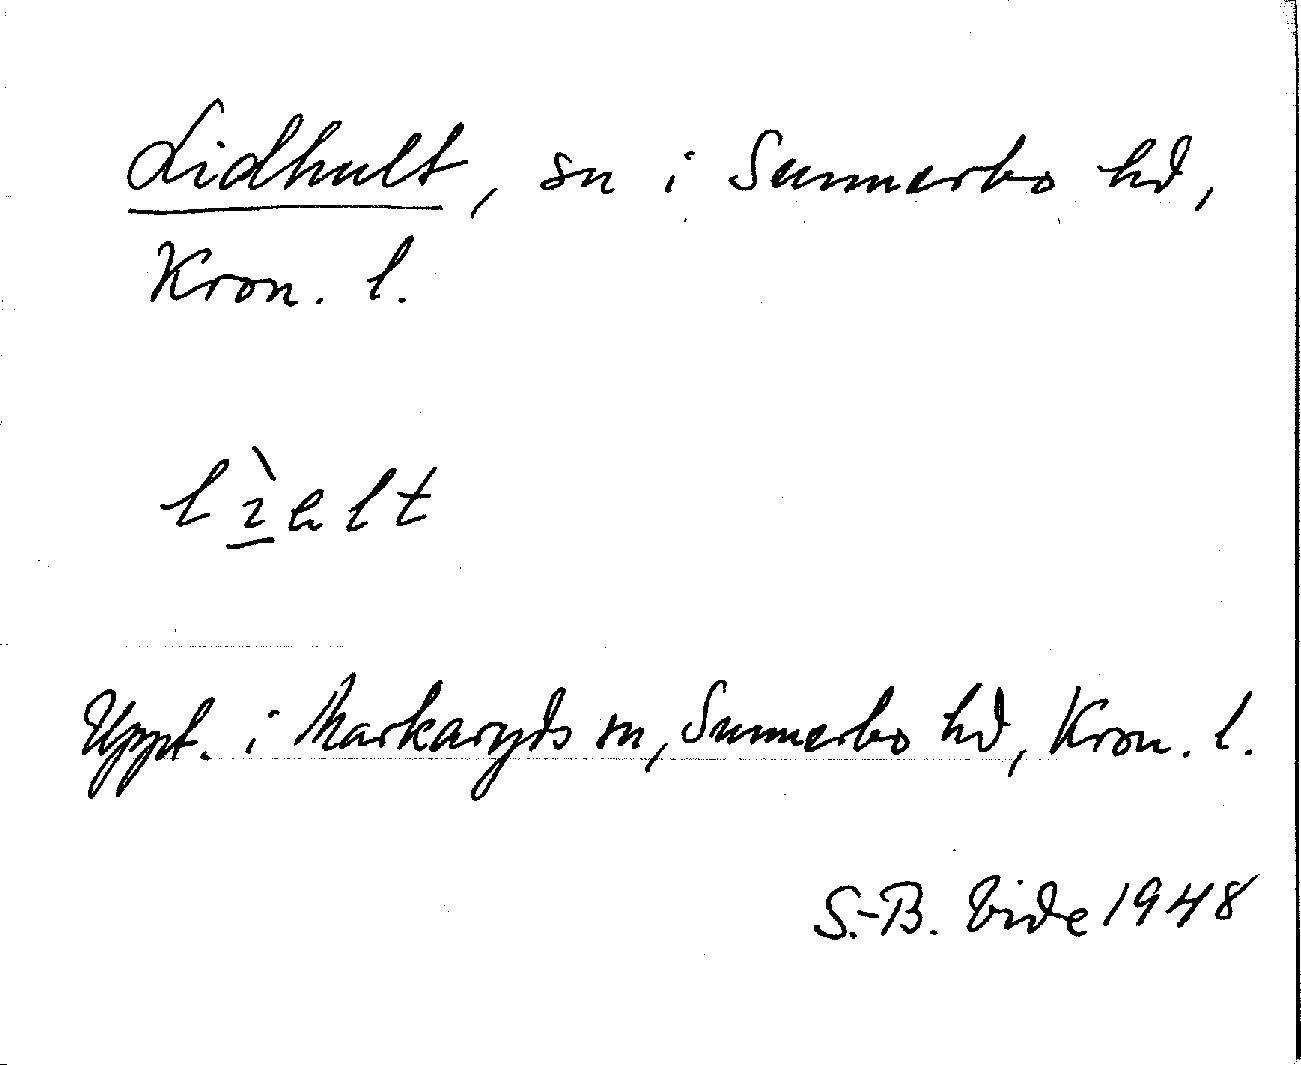 Lidhult, sn i Sunnerbo hd,
Kron. l.
lìalt
Uppt. i Markaryds sn, Sunnerbo hd, Kron. l.
S.-B. Vide 1948